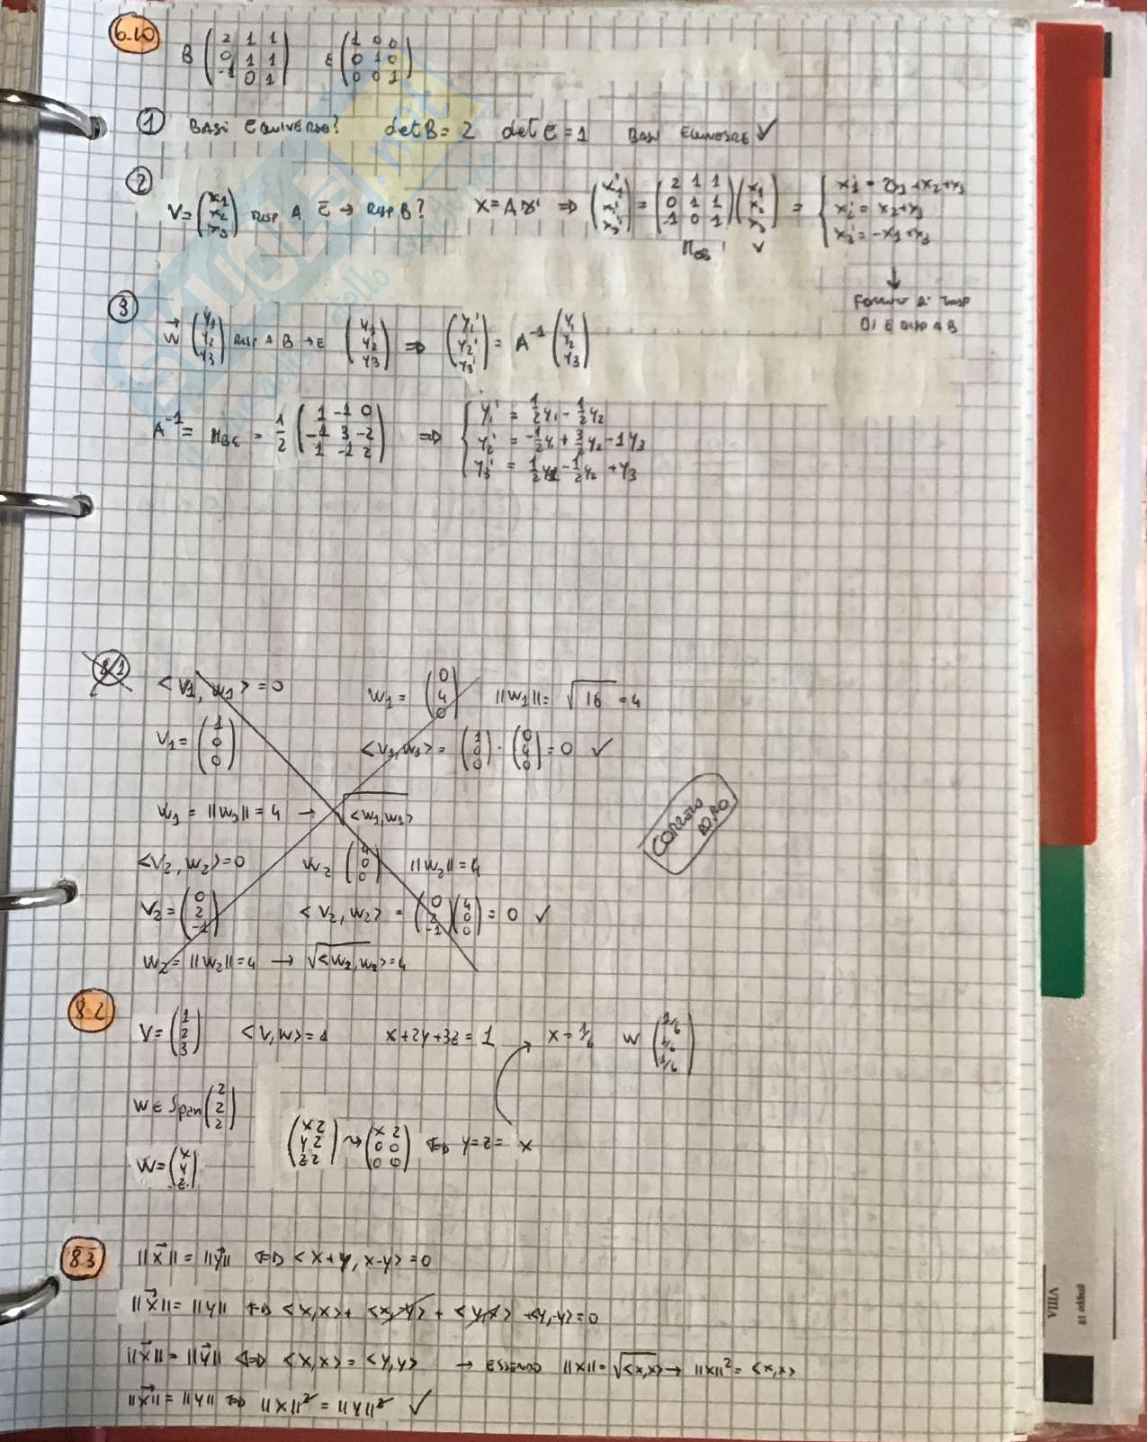 6.10 B (2 1 1 / 0 1 1 / -1 0 1) ε (1 0 0 / 0 1 0 / 0 0 1)
① BASI EQUIVERSE? det B = 2 det ε = 1 BASI ✓
② V = (x1 / x2 / x3) RISP A ε → RISP B? X = A X' ⇒ (x1' / x2' / x3') = (2 1 1 / 0 1 1 / -1 0 1)(x1 / x2 / x3) = { x1' = 2x1 + x2 + x3 / x2' = x2 + x3 / x3' = -x1 + x3
V
DI E RISP A B
③ W (y1 / y2 / y3) RISP A B → E (y1 / y2 / y3) ⇒ (y1' / y2' / y3') = A⁻¹ (y1 / y2 / y3)
A⁻¹ = M_Bε = 1/2 (1 -1 0 / -1 3 -2 / 1 -1 2) ⇒ { y1' = 1/2 y1 - 1/2 y2 / y2' = -1/2 y1 + 3/2 y2 - 1 y3 / y3' = 1/2 y1 - 1/2 y2 + y3
8.1 <V1, W1> = 0 W1 = (0 / 4 / 0) ||W1|| = √16 = 4
V1 = (1 / 0 / 0) <V1, W1> = (1 / 0 / 0) · (0 / 4 / 0) = 0 ✓
W1 = ||W1|| = 4 → √<W1, W1>
<V2, W2> = 0 W2 (4 / 0 / 0) ||W2|| = 4
V2 = (0 / 2 / -1) <V2, W2> = (0 / 2 / -1)(4 / 0 / 0) = 0 ✓
W2 = ||W2|| = 4 → √<W2, W2> = 4
8.2 V = (1 / 2 / 3) <V, W> = 1 x + 2y + 3z = 1 x = 1/6 W (1/6 / 1/6 / 1/6)
W ∈ Span (2 / 2 / 2)
(x 2 / y 2 / z 2) ⇝ (x 2 / 0 0 / 0 0) ⇔ y = z = x
W = (x / y / z)
8.3 ||x|| = ||y|| ⇔ <x+y, x-y> = 0
||x|| = ||y|| ⇔ <x,x> + <x,-y> + <y,x> + <y,-y> = 0
||x|| = ||y|| ⇔ <x,x> = <y,y> → ESSENDO ||x|| = √<x,x> → ||x||² = <x,x>
||x|| = ||y|| ⇔ ||x||² = ||y||² ✓